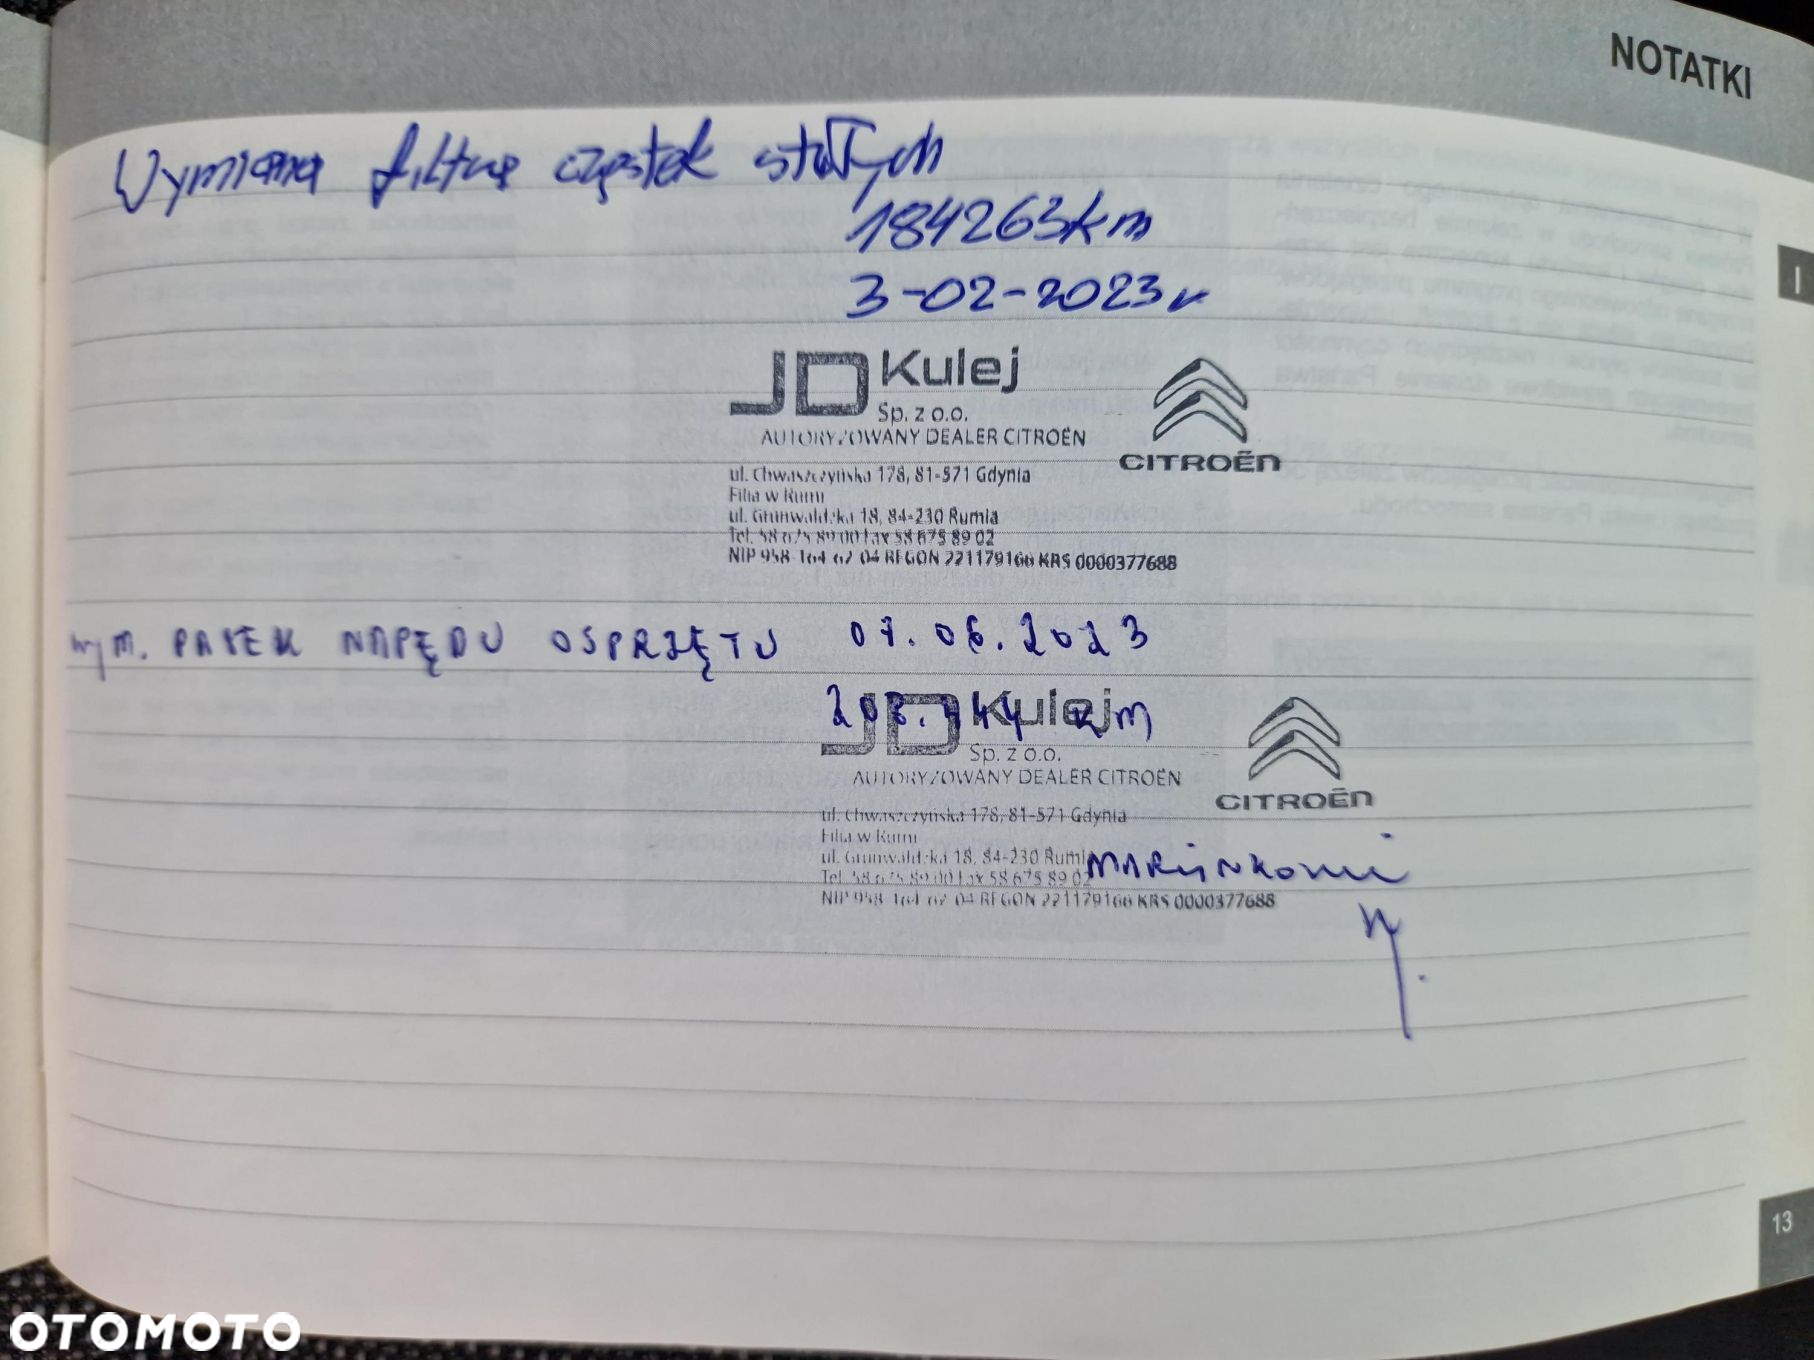 NOTATKI
Wymiana filtra cząstek stałych
184263km
3-02-2023r
I
JD Kulej
Sp. z o.o.
AUTORYZOWANY DEALER CITROËN
CITROËN
ul. Chwaszczyńska 178, 81-571 Gdynia
Filia w Rumi
ul. Grunwaldzka 18, 84-230 Rumia
Tel. 58 675 89 00 fax 58 675 89 02
NIP 958-164-62-04 REGON 221179166 KRS 0000377688
wym. PASEK NAPĘDU OSPRZĘTU 07.06.2023
JD Kulej
KM
Sp. z o.o.
AUTORYZOWANY DEALER CITROËN
CITROËN
ul. Chwaszczyńska 178, 81-571 Gdynia
Filia w Rumi
ul. Grunwaldzka 18, 84-230 Rumia
Tel. 58 675 89 00 fax 58 675 89 02
NIP 958-164-62-04 REGON 221179166 KRS 0000377688
13
OTOMOTO